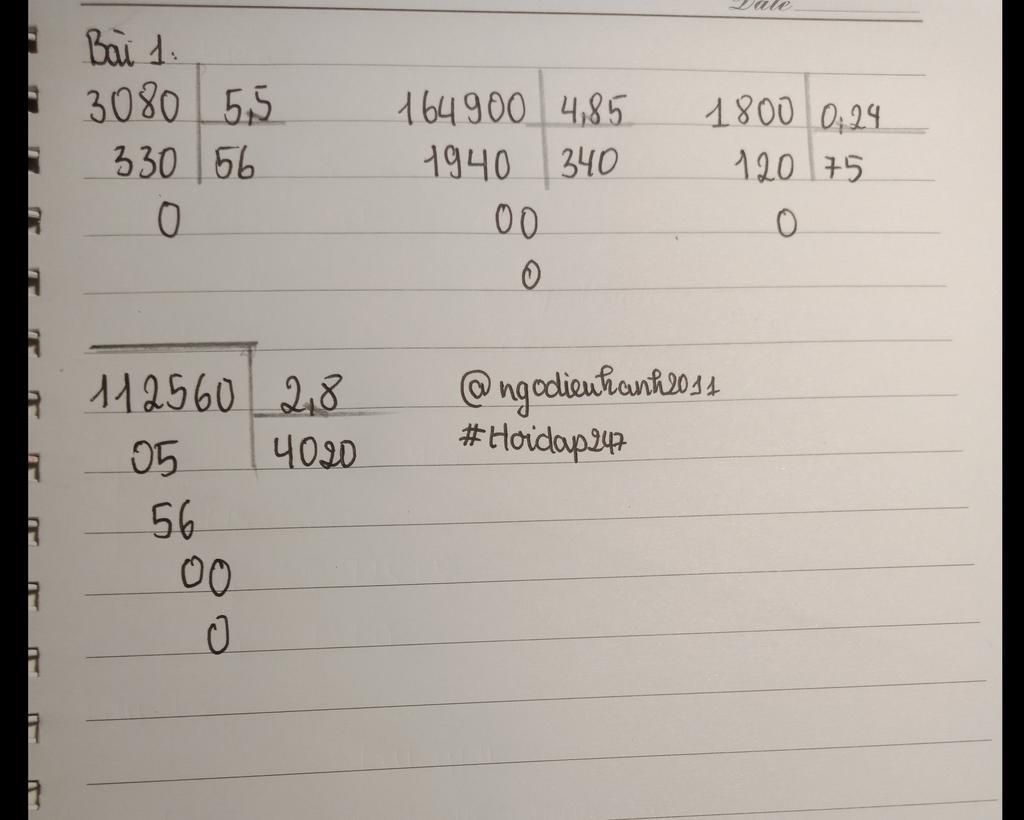 Date
Bài 1:
3080 5,5 164900 4,85 1800 0,24
330 56 1940 340 120 75
0 00 0
0
112560 2,8 @ngodieuhanh2011
05 4020 #Hoidap247
56
00
0